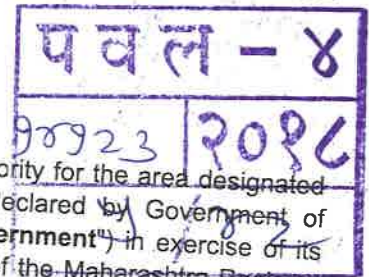 पवल - ४
१४१२३ २०१८
ority for the area designated
eclared by Government of
ernment") in exercise of its
of the Maharashtra